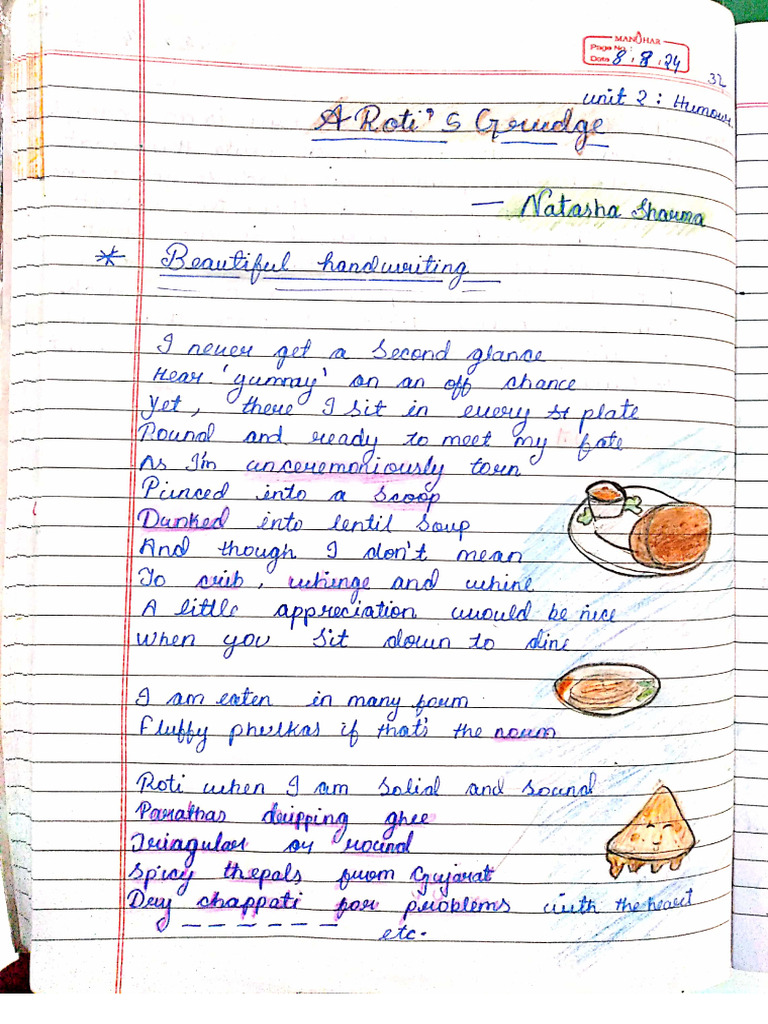 MANOHAR
Page No.:
Date 8.8.24
32
unit 2 : Humour
A Roti's Grudge
— Natasha Sharma
* Beautiful handwriting
I never get a second glance
Hear 'yummy' on an off chance
Yet, there I sit in every plate
Round and ready to meet my fate
As I'm unceremoniously torn
Pinced into a scoop
Dunked into lentil soup
And though I don't mean
To crib, whinge and whine
A little appreciation would be nice
When you sit down to dine
I am eaten in many form
Fluffy phulkas if that's the norm
Roti when I am solid and sound
Parathas dripping ghee
Triangular or round
Spicy thepals from Gujarat
Dry chappati for problems with the heart
— — — — — —
etc.